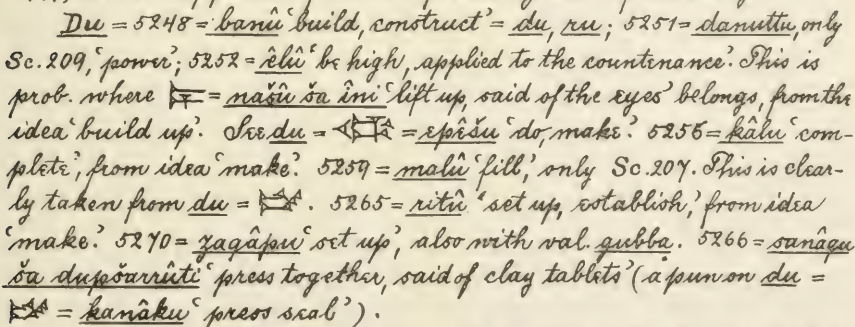 Du = 5248 = banû ‘build, construct’ = du, ru; 5251 = danuttu, only
Sc. 209, ‘power’; 5252 = êlû ‘be high, applied to the countenance’. This is
prob. where = našû ša îni ‘lift up, said of the eyes’ belongs, from the
idea ‘build up’. See du = = epêšu ‘do, make’. 5256 = kâlu ‘com-
plete’, from idea ‘make’. 5259 = malû ‘fill,’ only Sc. 207. This is clear-
ly taken from du = . 5265 = ritû ‘set up, establish,’ from idea
‘make’. 5270 = zagâpu ‘set up’, also with val. gubba. 5266 = sanâqu
ša dupšarrûti ‘press together, said of clay tablets’ (a pun on du =
= kanâku ‘press seal’).